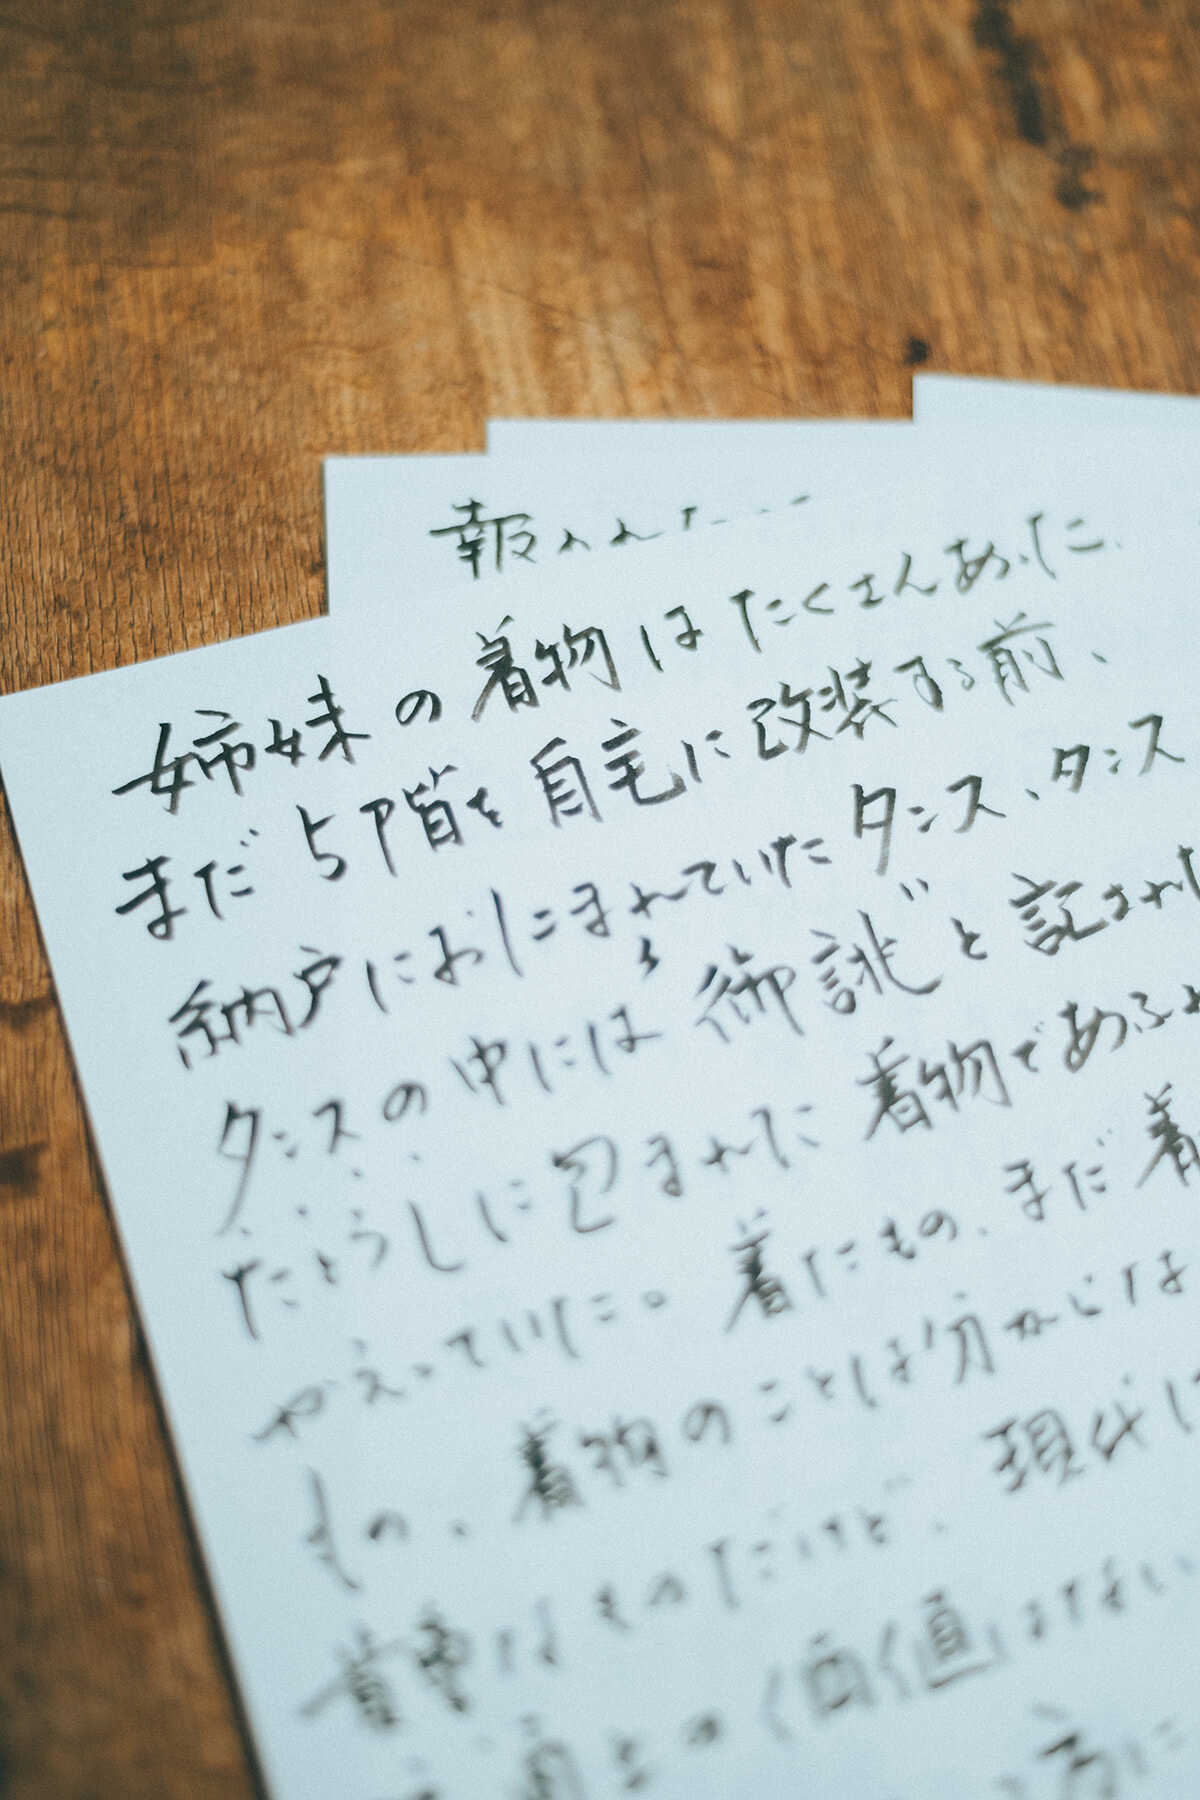 報われた
姉妹の着物はたくさんあった。
まだ5階を自宅に改装する前、
納戸におしこまれていたタンス、タンス
タンスの中には御誂と記された
たとうしに包まれた着物であふれ
かえっていた。着たもの、まだ着
もの。着物のことは分からな
貴重なものだけど、現代に
価値はない
方に